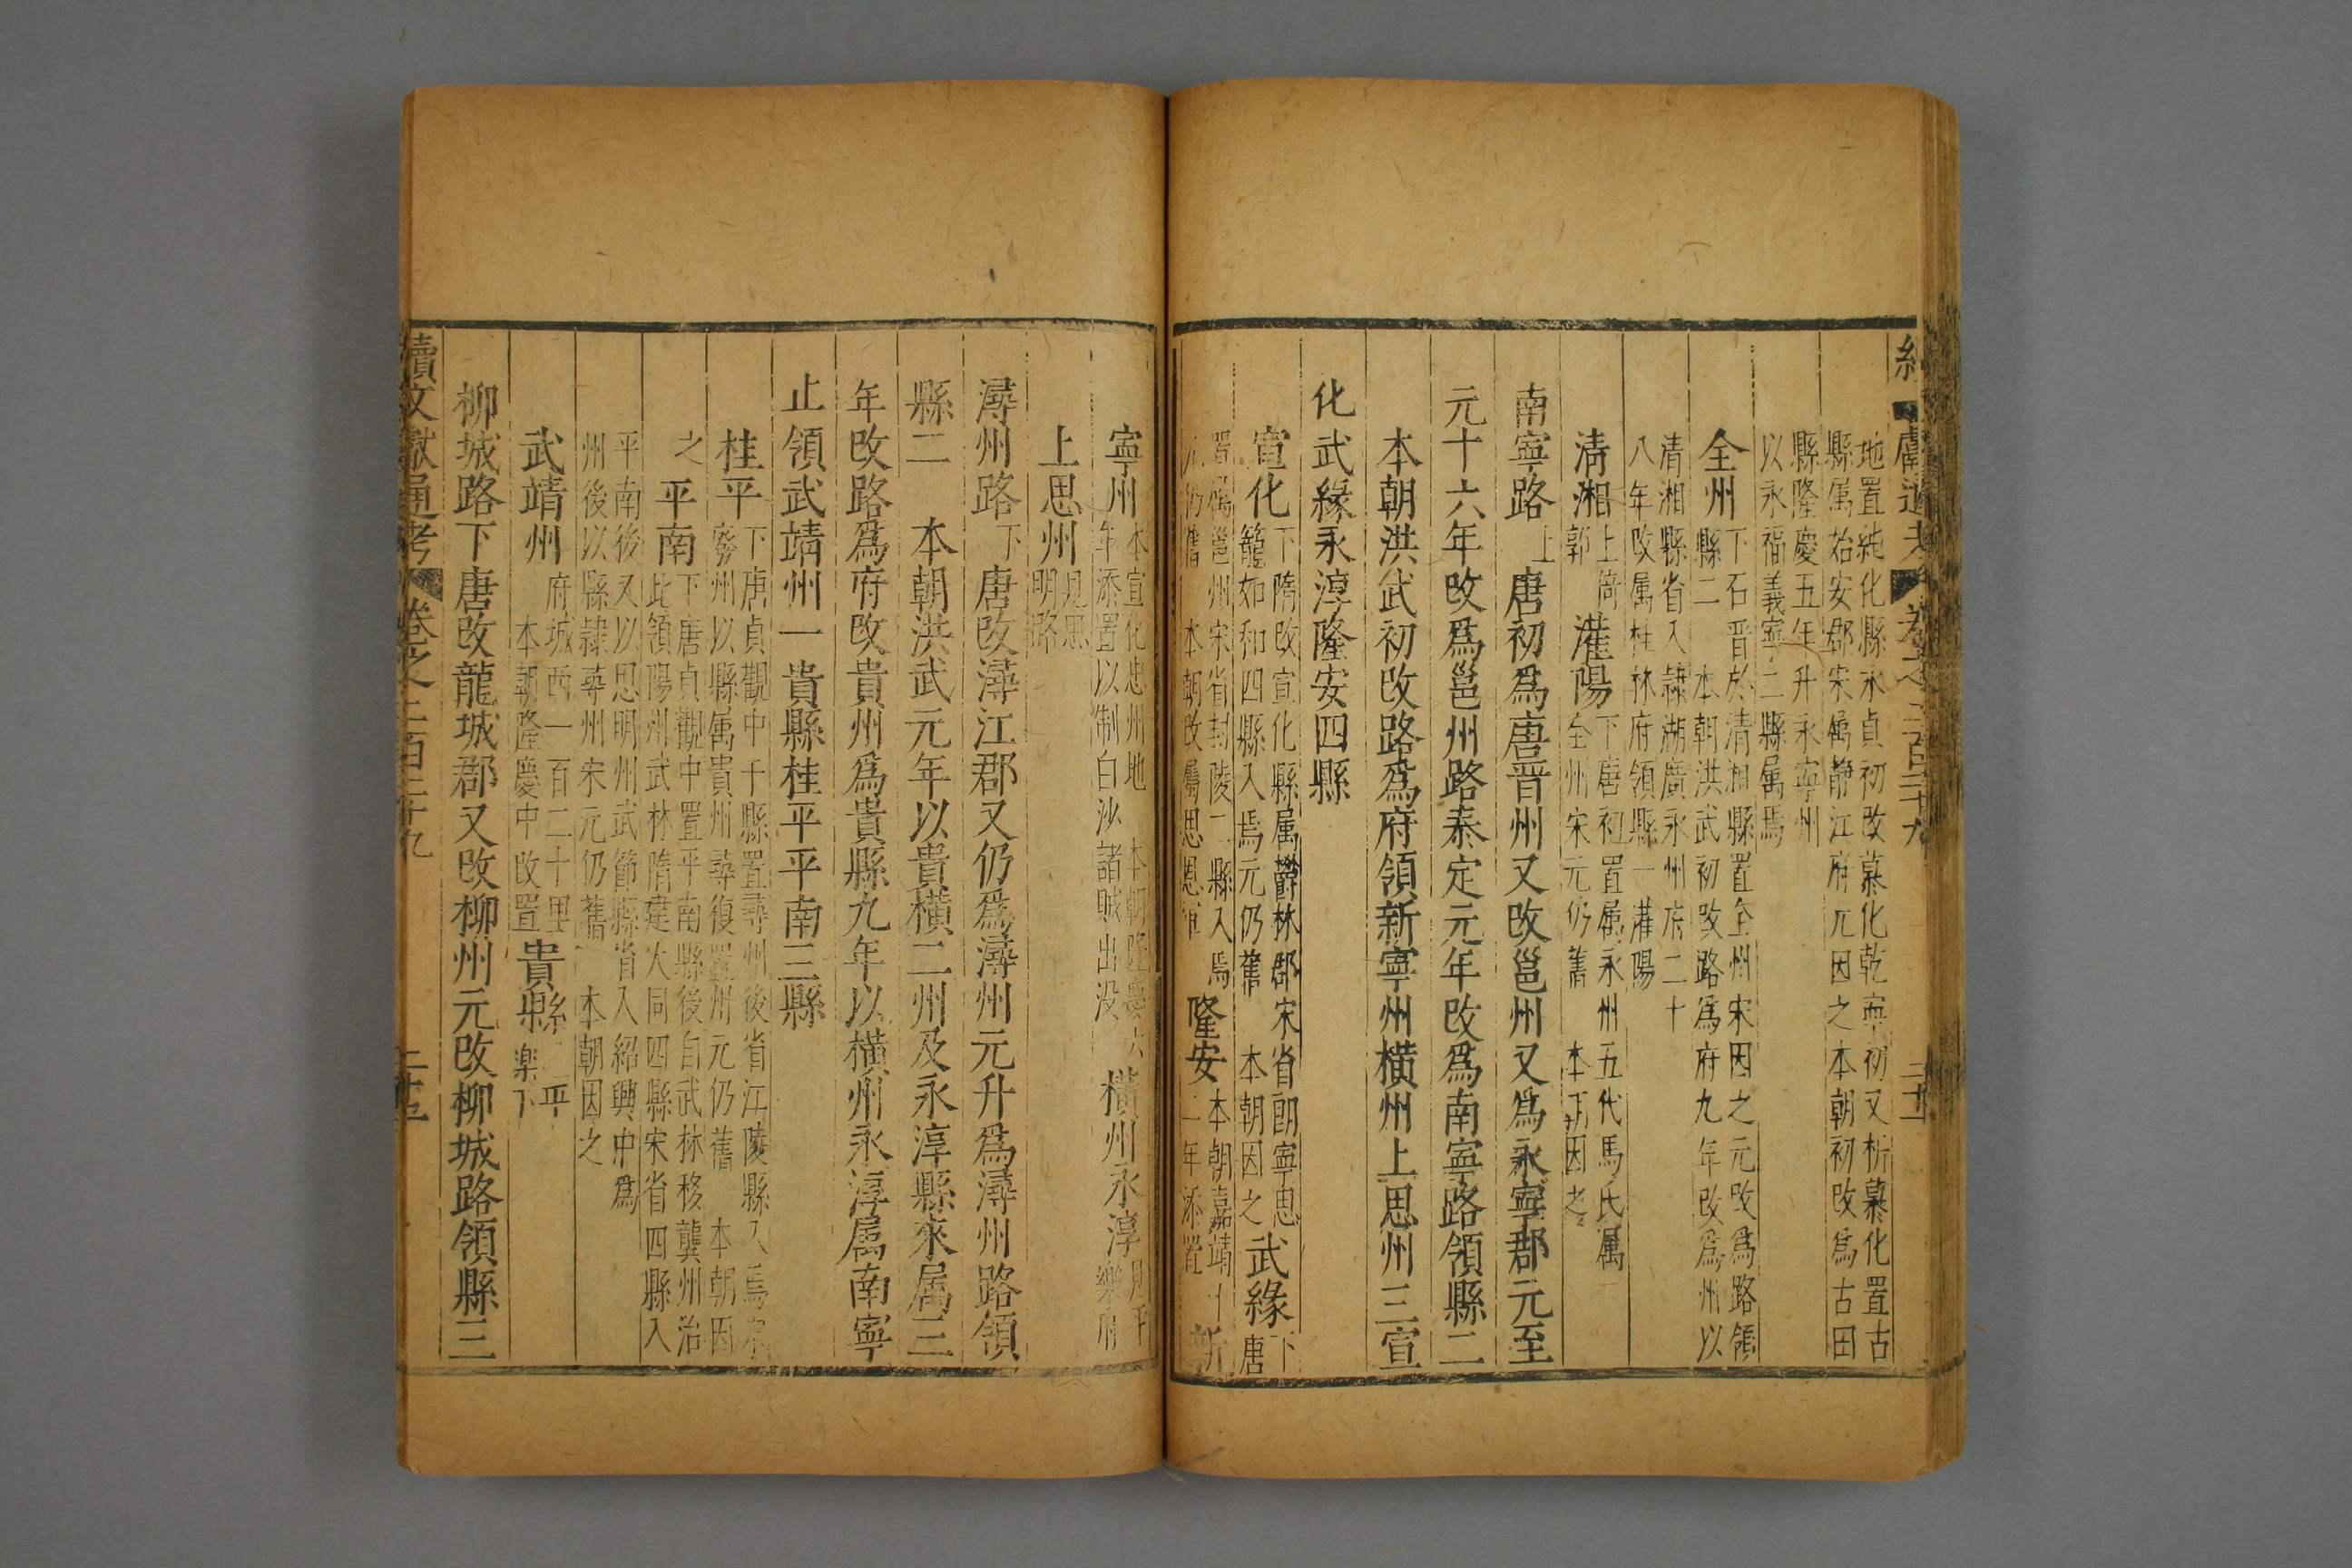 地置純化縣永貞初改慕化乾寧初又析慕化置古
縣属始安郡宋属靜江府元因之本朝初改為古田
縣隆慶五年升永寧州
以永福義寧二縣属焉
全州
下石晋於清湘縣置全州宋因之元改為路領
縣二 本朝洪武初改路為府九年改為州以
清湘縣省入隷湖廣永州府二十
八年改属桂林府領縣一灌陽
清湘
上倚
郭
灌陽
下唐初置属永州五代馬氏属
全州宋元仍舊 本朝因之
南寧路
上
唐初爲唐晋州又改邕州又爲永寧郡元至
元十六年改爲邕州路泰定元年改爲南寧路領縣二
本朝洪武初改路爲府領新寧州橫州上思州三宣
化武緣永淳隆安四縣
宣化
下隋改宣化縣属欝林郡宋省朗寧思
籠如和四縣入焉元仍舊 本朝因之
武緣
下
唐
置属邕州宋省封陵二縣入焉
元仍舊 本朝改屬思恩軍
隆安
本朝嘉靖十
二年添置
新
寧州
本宣化忠州地 本朝隆慶六
年添置以制白沙諸賊出没
橫州永淳
樂府
上思州
見思
明路
潯州路
下
唐改潯江郡又仍爲潯州元升爲潯州路領
縣二 本朝洪武元年以貴橫二州及永淳縣來属三
年改路爲府改貴州爲貴縣九年以橫州永淳属南寧
止領武靖州一貴縣桂平平南三縣
桂平
下唐貞觀中于縣置尋州後省江陵縣入焉
廢州以縣属貴州尋復置州元仍舊 本朝因
之
平南
下唐貞觀中置平南縣後自武林移龔州治
此領陽州武林隋建大同四縣宋省四縣入
平南後又以思明州武節縣省入紹興中爲
州後以縣隷尋州宋元仍舊 本朝因之
武靖州
府城西一百二十里
本朝隆慶中改置
貴縣
平
樂下
柳城路下唐改龍城郡又改柳州元改柳城路領縣三
續文獻通考 卷之二百二十九